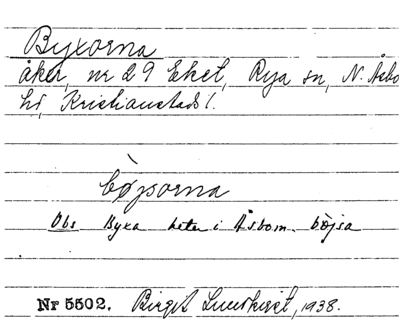 Byxorna
åker, nr 29 Eket, Rya sn, N. Åsbo
hd, Kristianstads l.
bø̀psorna
Obs Byxa heter i Åsbom. bø̀jsa
Nr 5502. Birgit Lundkvist, 1938.